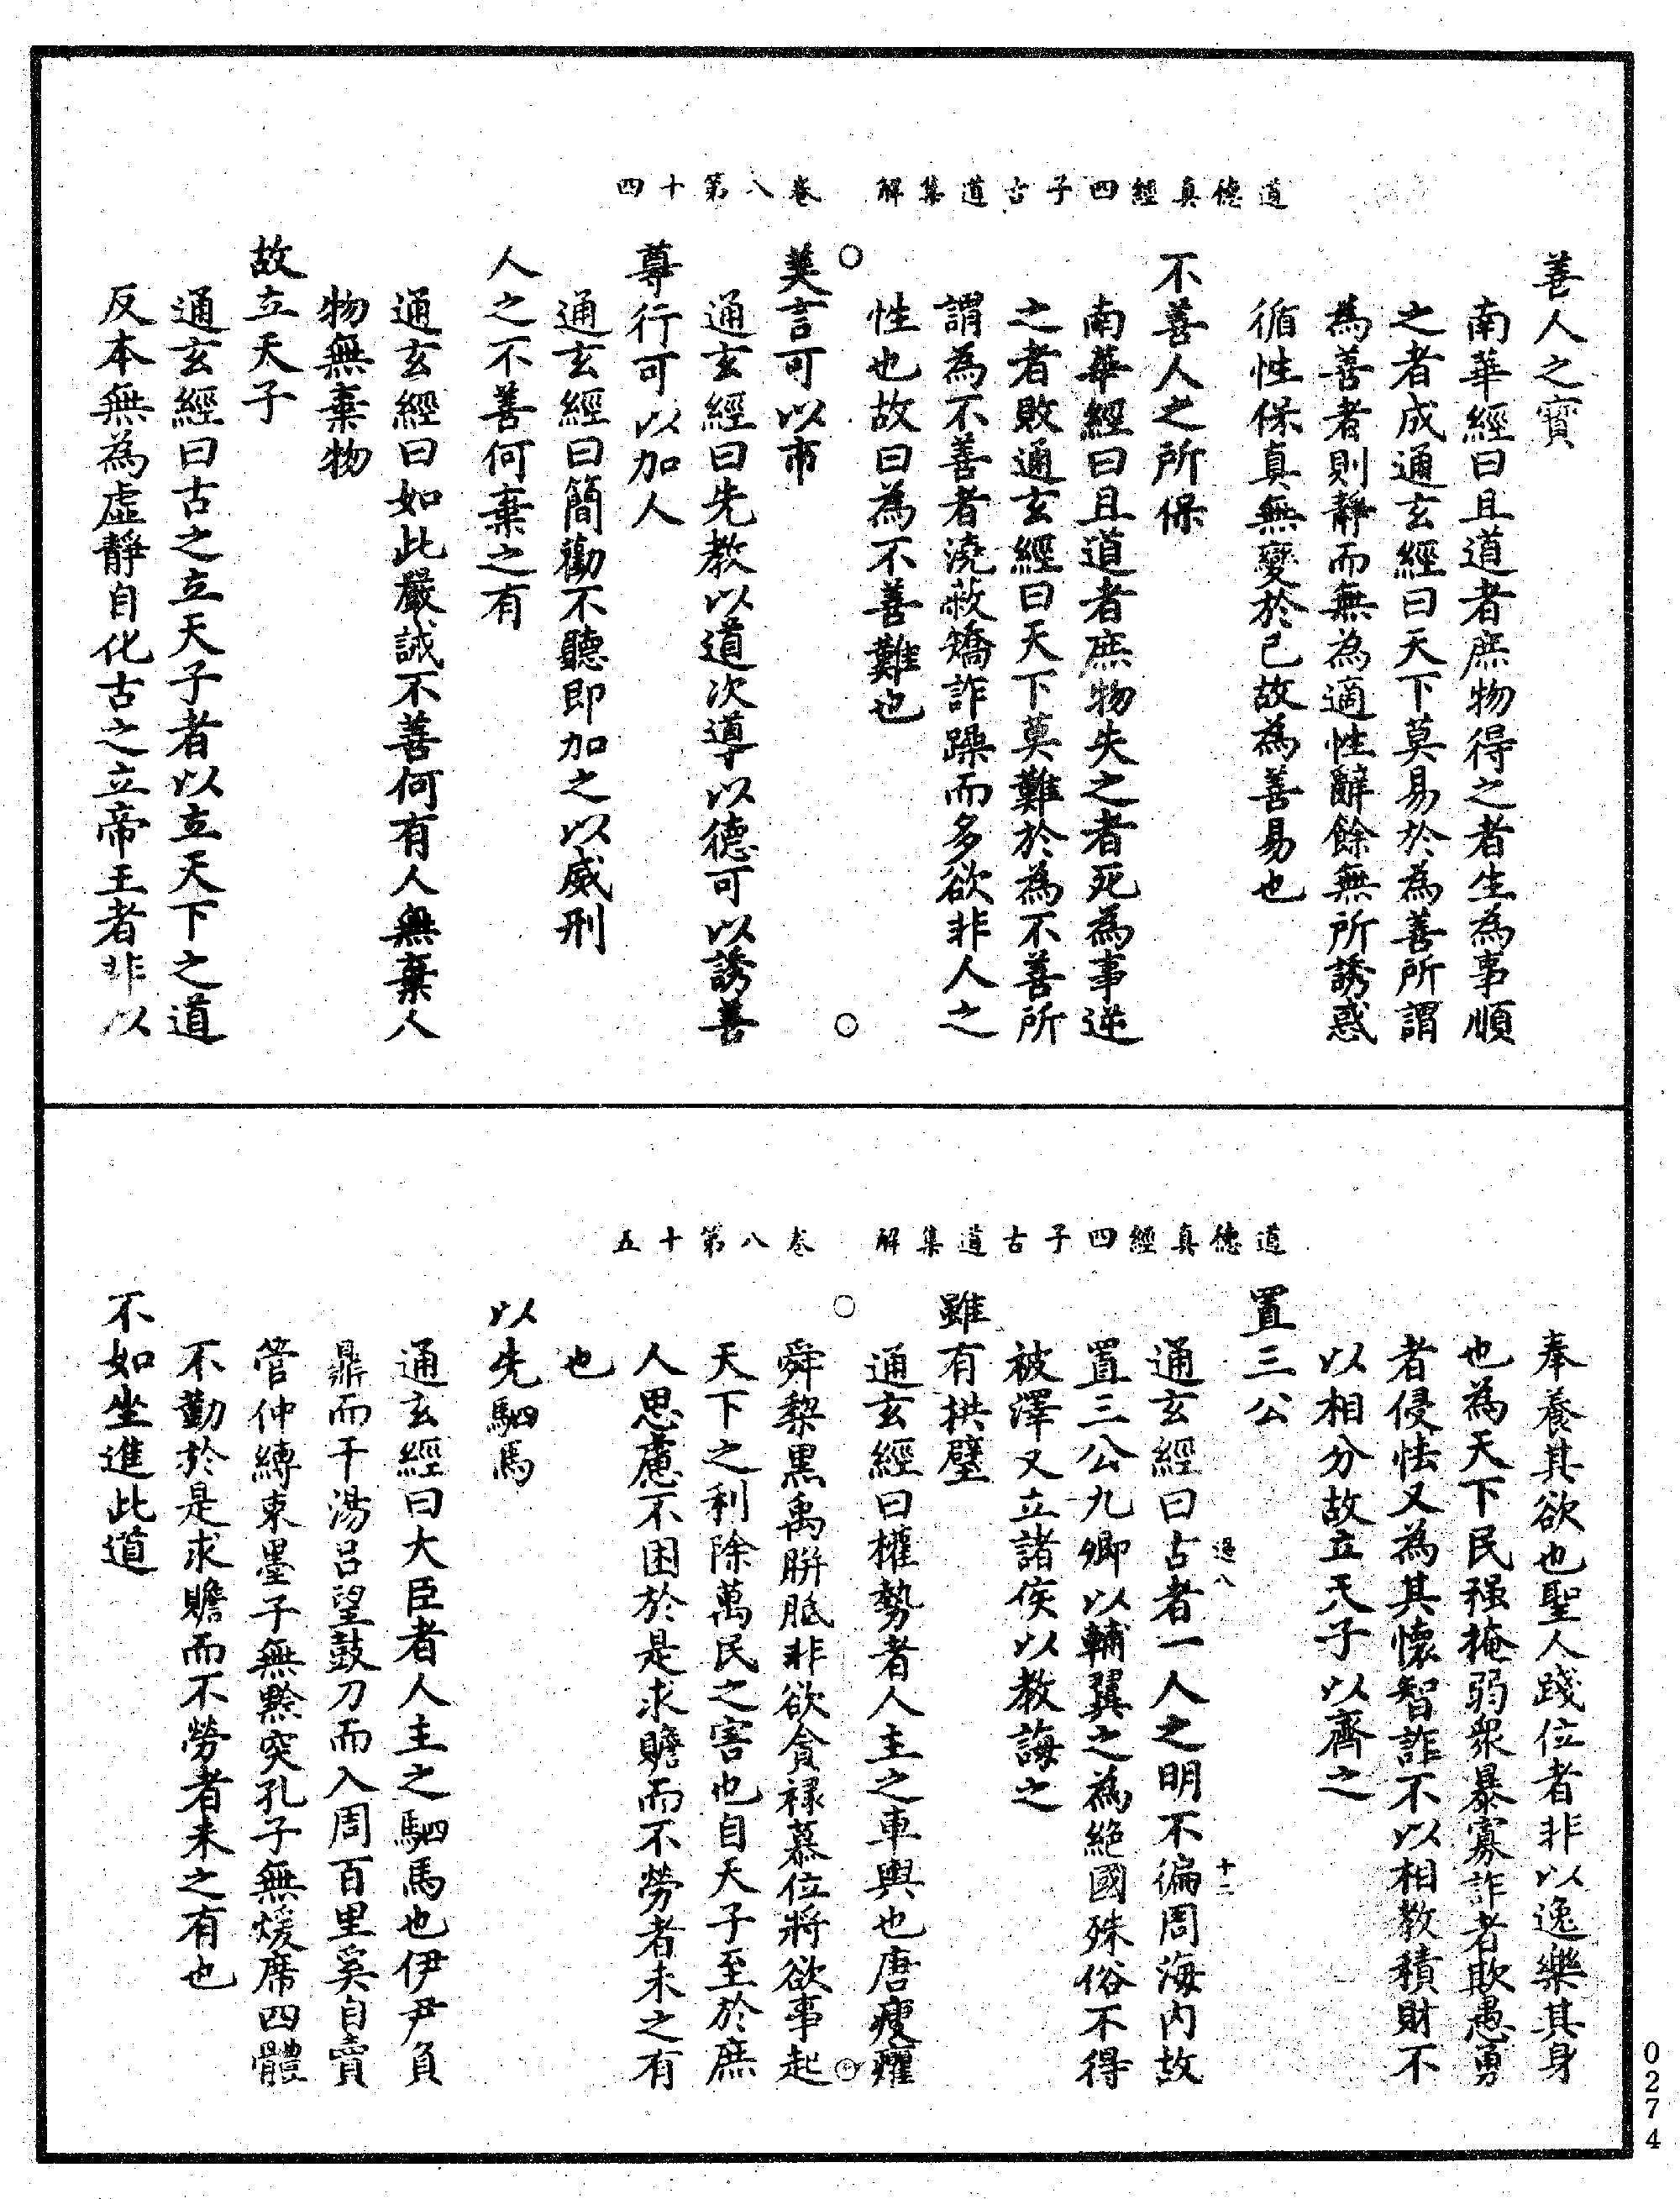 道德真經四子古道集解　卷八第十四
善人之寳
南華經曰且道者庶物得之者生為事順
之者成通玄經曰天下莫易於為善所謂
為善者則靜而無為適性辭餘無所誘惑
循性保真無變於己故為善易也
不善人之所保
南華經曰且道者庶物失之者死為事逆
之者敗通玄經曰天下莫難於為不善所
謂為不善者澆蔽矯詐躁而多欲非人之
性也故曰為不善難也
美言可以市
通玄經曰先教以道次導以德可以誘善
尊行可以加人
通玄經曰簡勸不聽即加之以威刑
人之不善何棄之有
通玄經曰如此嚴誡不善何有人無棄人
物無棄物
故立天子
通玄經曰古之立天子者以立天下之道
反本無為虛靜自化古之立帝王者非以
道德真經四子古道集解　卷八第十五
奉養其欲也聖人踐位者非以逸樂其身
也為天下民强掩弱衆暴寡詐者欺愚勇
者侵怯又為其懷智詐不以相教積財不
以相分故立天子以齊之
置三公
過八　十二
通玄經曰古者一人之明不徧周海内故
置三公九卿以輔翼之為絕國殊俗不得
被澤又立諸侯以教誨之
雖有拱璧
通玄經曰權勢者人主之車輿也唐瘦癯
舜黎黒禹胼胝非欲貪禄慕位將欲事起
天下之利除萬民之害也自天子至於庶
人思慮不困於是求贍而不勞者未之有
也
以先駟馬
通玄經曰大臣者人主之駟馬也伊尹負
鼎而干湯吕望鼓刀而入周百里奚自賣
管仲縛束墨子無黔突孔子無煖席四體
不勤於是求贍而不勞者未之有也
不如坐進此道
0274